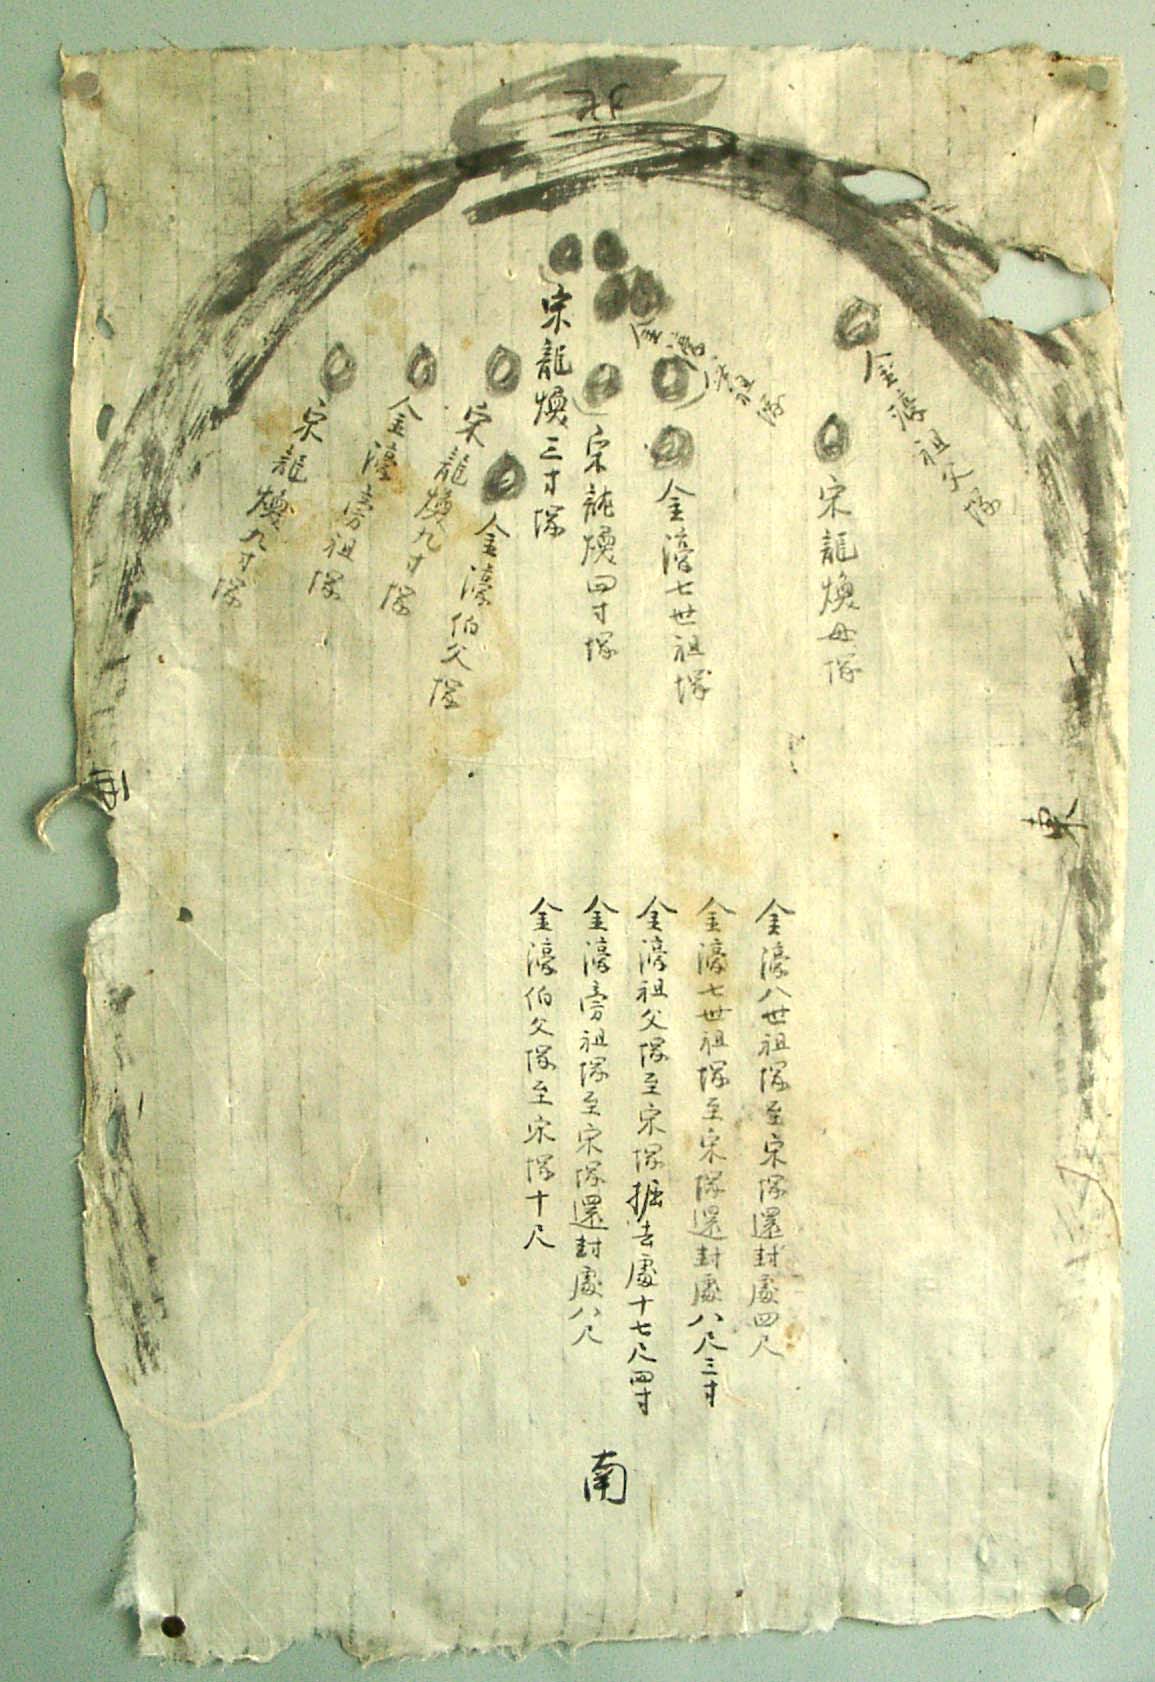 北
金濠祖父塚
宋龍煥母塚
金濠七世祖塚
宋龍煥四寸塚
宋龍煥三寸塚
金濠伯父塚
宋龍煥九寸塚
金濠傍祖塚
宋龍煥九寸塚
東
西
金濠八世祖塚至宋塚還封處四尺
金濠七世祖塚至宋塚還封處八尺三寸
金濠祖父塚至宋塚掘去處十七尺四寸
金濠傍祖塚至宋塚還封處八尺
金濠伯父塚至宋塚十尺
南